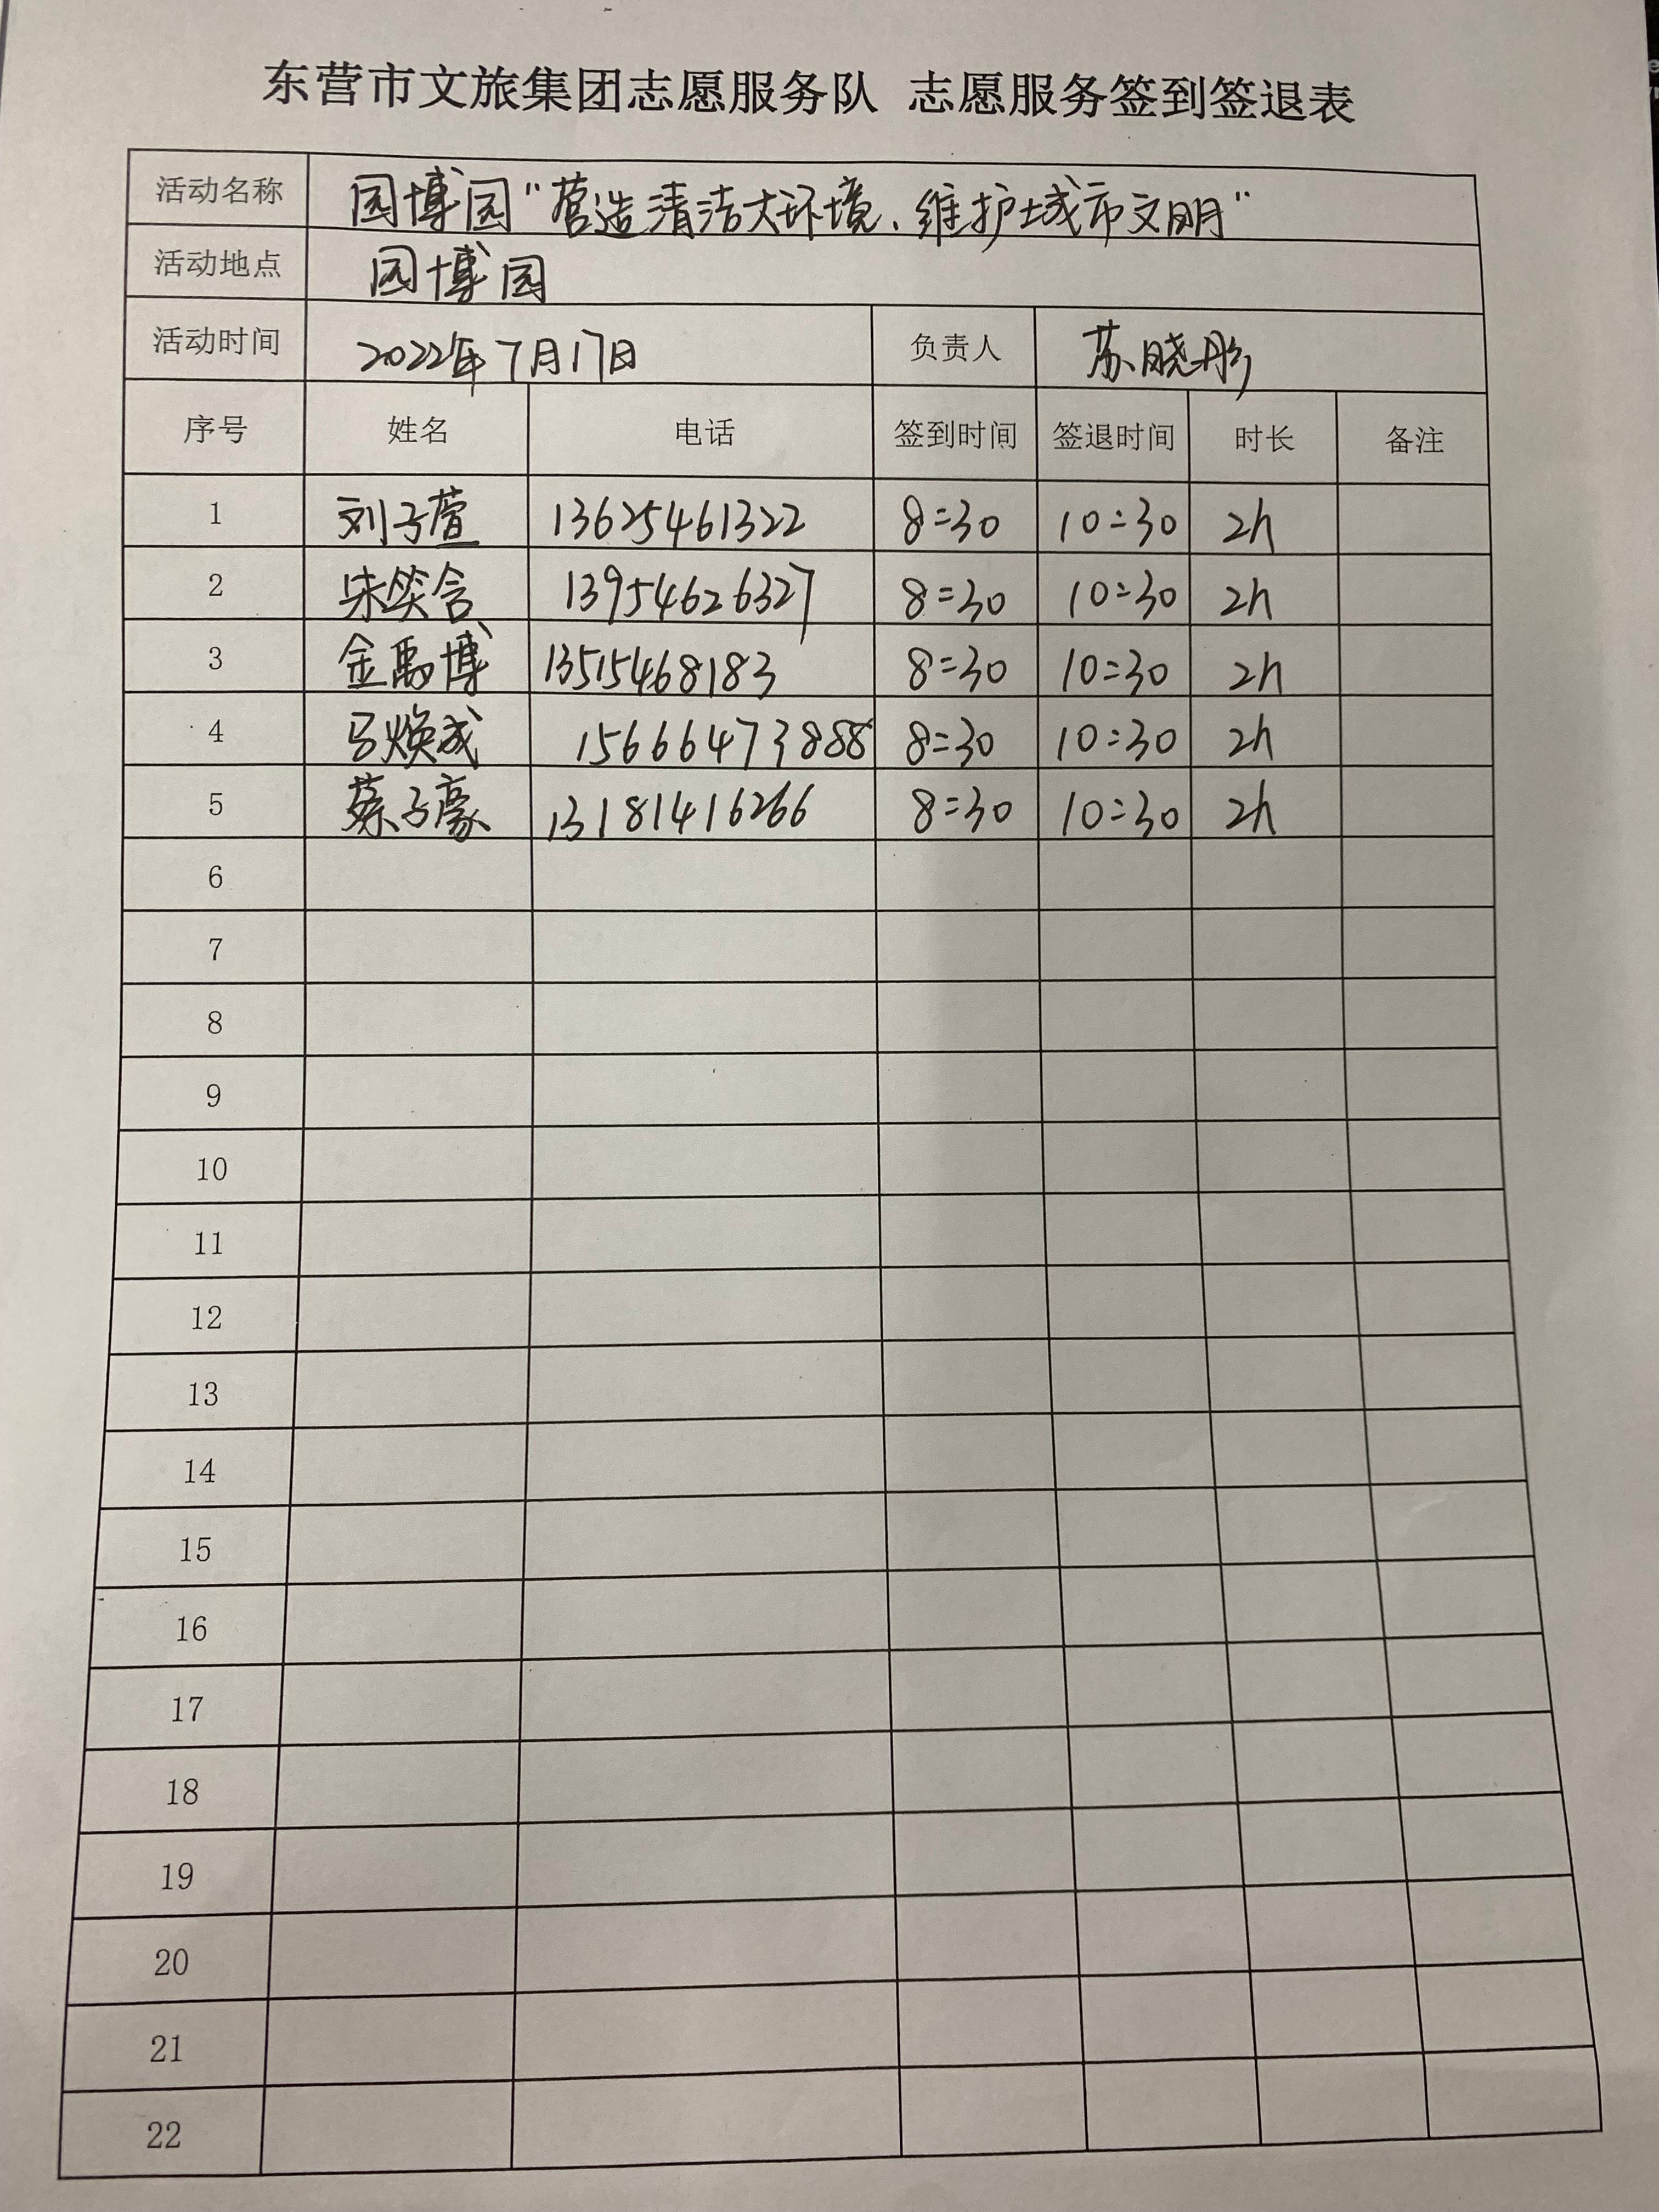 东营市文旅集团志愿服务队 志愿服务签到签退表
活动名称 园博园“营造清洁大环境、维护城市文明”
活动地点 园博园
活动时间 2022年7月17日 负责人 苏晓彤
序号 姓名 电话 签到时间 签退时间 时长 备注
1 刘子萱 13625461322 8:30 10:30 2h
2 宋笑含 13954626327 8:30 10:30 2h
3 金禹博 13515468183 8:30 10:30 2h
4 马焕成 15666473888 8:30 10:30 2h
5 蔡子豪 13181416266 8:30 10:30 2h
6
7
8
9
10
11
12
13
14
15
16
17
18
19
20
21
22